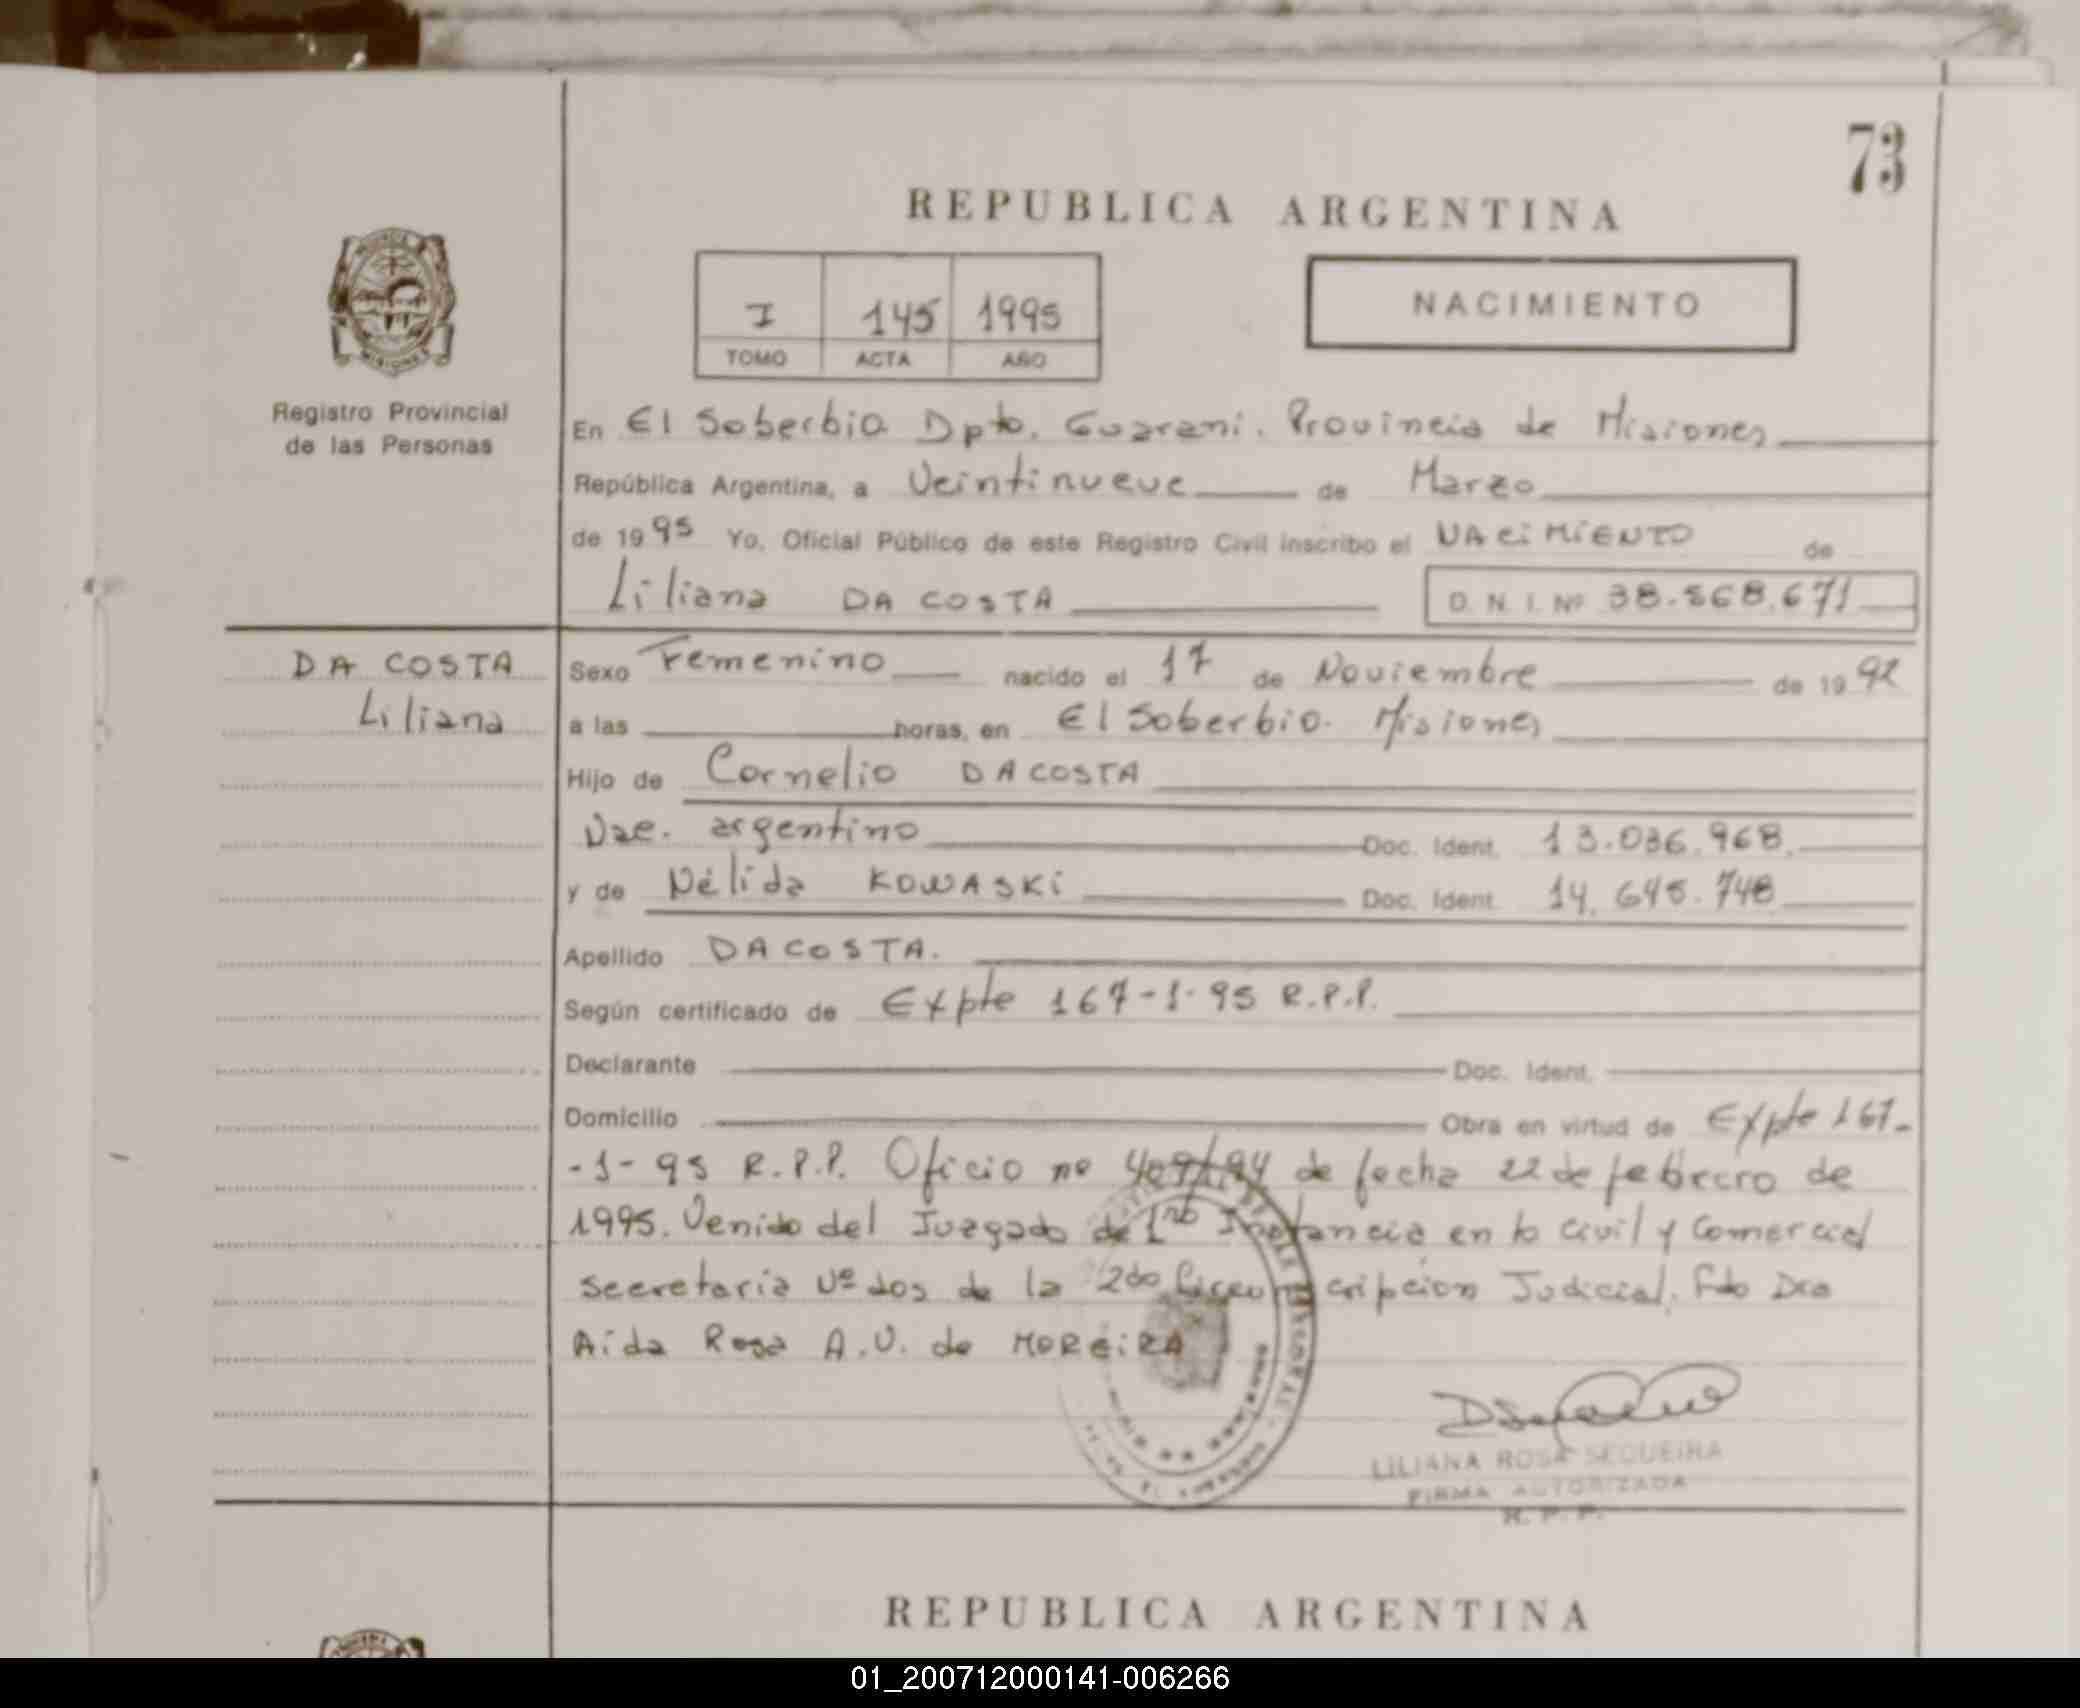 73
REPUBLICA ARGENTINA
I 145 1995
TOMO ACTA AÑO
NACIMIENTO
Registro Provincial
de las Personas
En El Soberbio Dpto. Guarani. Provincia de Misiones
República Argentina, a Veintinueve de Marzo
de 1995 Yo, Oficial Público de este Registro Civil inscribo el NACIMIENTO de
Liliana DA COSTA D. N. I. Nº 38.568.671
DA COSTA
Liliana
Sexo Femenino nacido el 17 de Noviembre de 1992
a las horas, en El Soberbio. Misiones
Hijo de Cornelio DA COSTA
Nac. argentino Doc. Ident. 13.036.968.
y de Nélida KOWASKI Doc. Ident. 14.645.748
Apellido DA COSTA.
Según certificado de Expte 167-1-95 R.P.P.
Declarante Doc. Ident.
Domicilio Obra en virtud de Expte 167-
-1-95 R.P.P. Oficio no 409/94 de fecha 22 de febrero de
1995. Venido del Juzgado de 1ra Instancia en lo Civil y Comercial
Secretaria Nº dos de la 2da Circunscripcion Judicial. Fdo Dra
Aida Rosa A.V. de MOREIRA
LILIANA ROSA SEQUEIRA
FIRMA AUTORIZADA
R. P. P.
REPUBLICA ARGENTINA
01_200712000141-006266